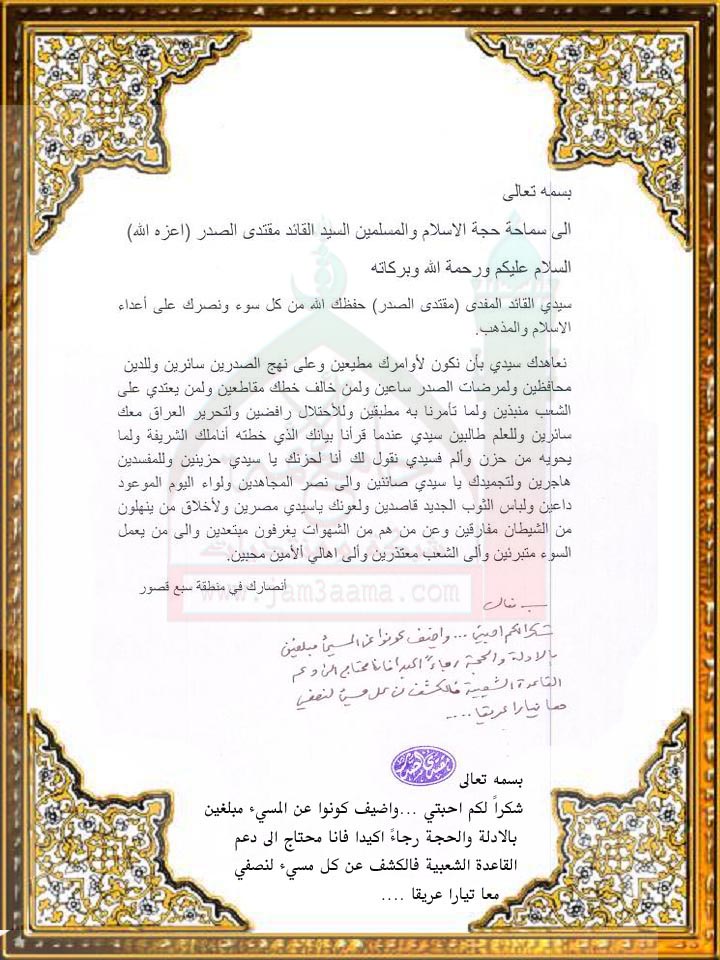 بسمه تعالى
الى سماحة حجة الاسلام والمسلمين السيد القائد مقتدى الصدر (اعزه الله)
السلام عليكم ورحمة الله وبركاته
سيدي القائد المفدى (مقتدى الصدر) حفظك الله من كل سوء ونصرك على أعداء
الاسلام والمذهب.
نعاهدك سيدي بأن نكون لأوامرك مطيعين وعلى نهج الصدرين سائرين وللدين
محافظين ولمرضات الصدر ساعين ولمن خالف خطك مقاطعين ولمن يعتدي على
الشعب منبذين ولما تأمرنا به مطبقين وللأحتلال رافضين ولتحرير العراق معك
سائرين وللعلم طالبين سيدي عندما قرأنا بيانك الذي خطته أناملك الشريفة ولما
يحويه من حزن وألم فسيدي نقول لك أنا لحزنك يا سيدي حزينين وللمفسدين
هاجرين ولتجميدك يا سيدي صائنين والى نصر المجاهدين ولواء اليوم الموعود
داعين ولباس الثوب الجديد قاصدين ولعونك ياسيدي مصرين ولأخلاق من ينهلون
من الشيطان مفارقين وعن من هم من الشهوات يغرفون مبتعدين والى من يعمل
السوء متبرئين وألى الشعب معتذرين وألى اهالي ألأمين محبين.
أنصارك في منطقة سبع قصور
www.jam3aama.com
بسمه تعالى
شكرا لكم احبتي ... واضيف كونوا عن المسيء مبلغين
بالادلة والحجة رجاءً اكيدا فانا محتاج الى دعم
القاعدة الشعبية فالكشف عن كل مسيء لنصفي
معا تيارا عريقا ....
مقتدى الصدر
بسمه تعالى
شكراً لكم احبتي ...واضيف كونوا عن المسيء مبلغين
بالادلة والحجة رجاءً اكيدا فانا محتاج الى دعم
القاعدة الشعبية فالكشف عن كل مسيء لنصفي
معا تيارا عريقا ....